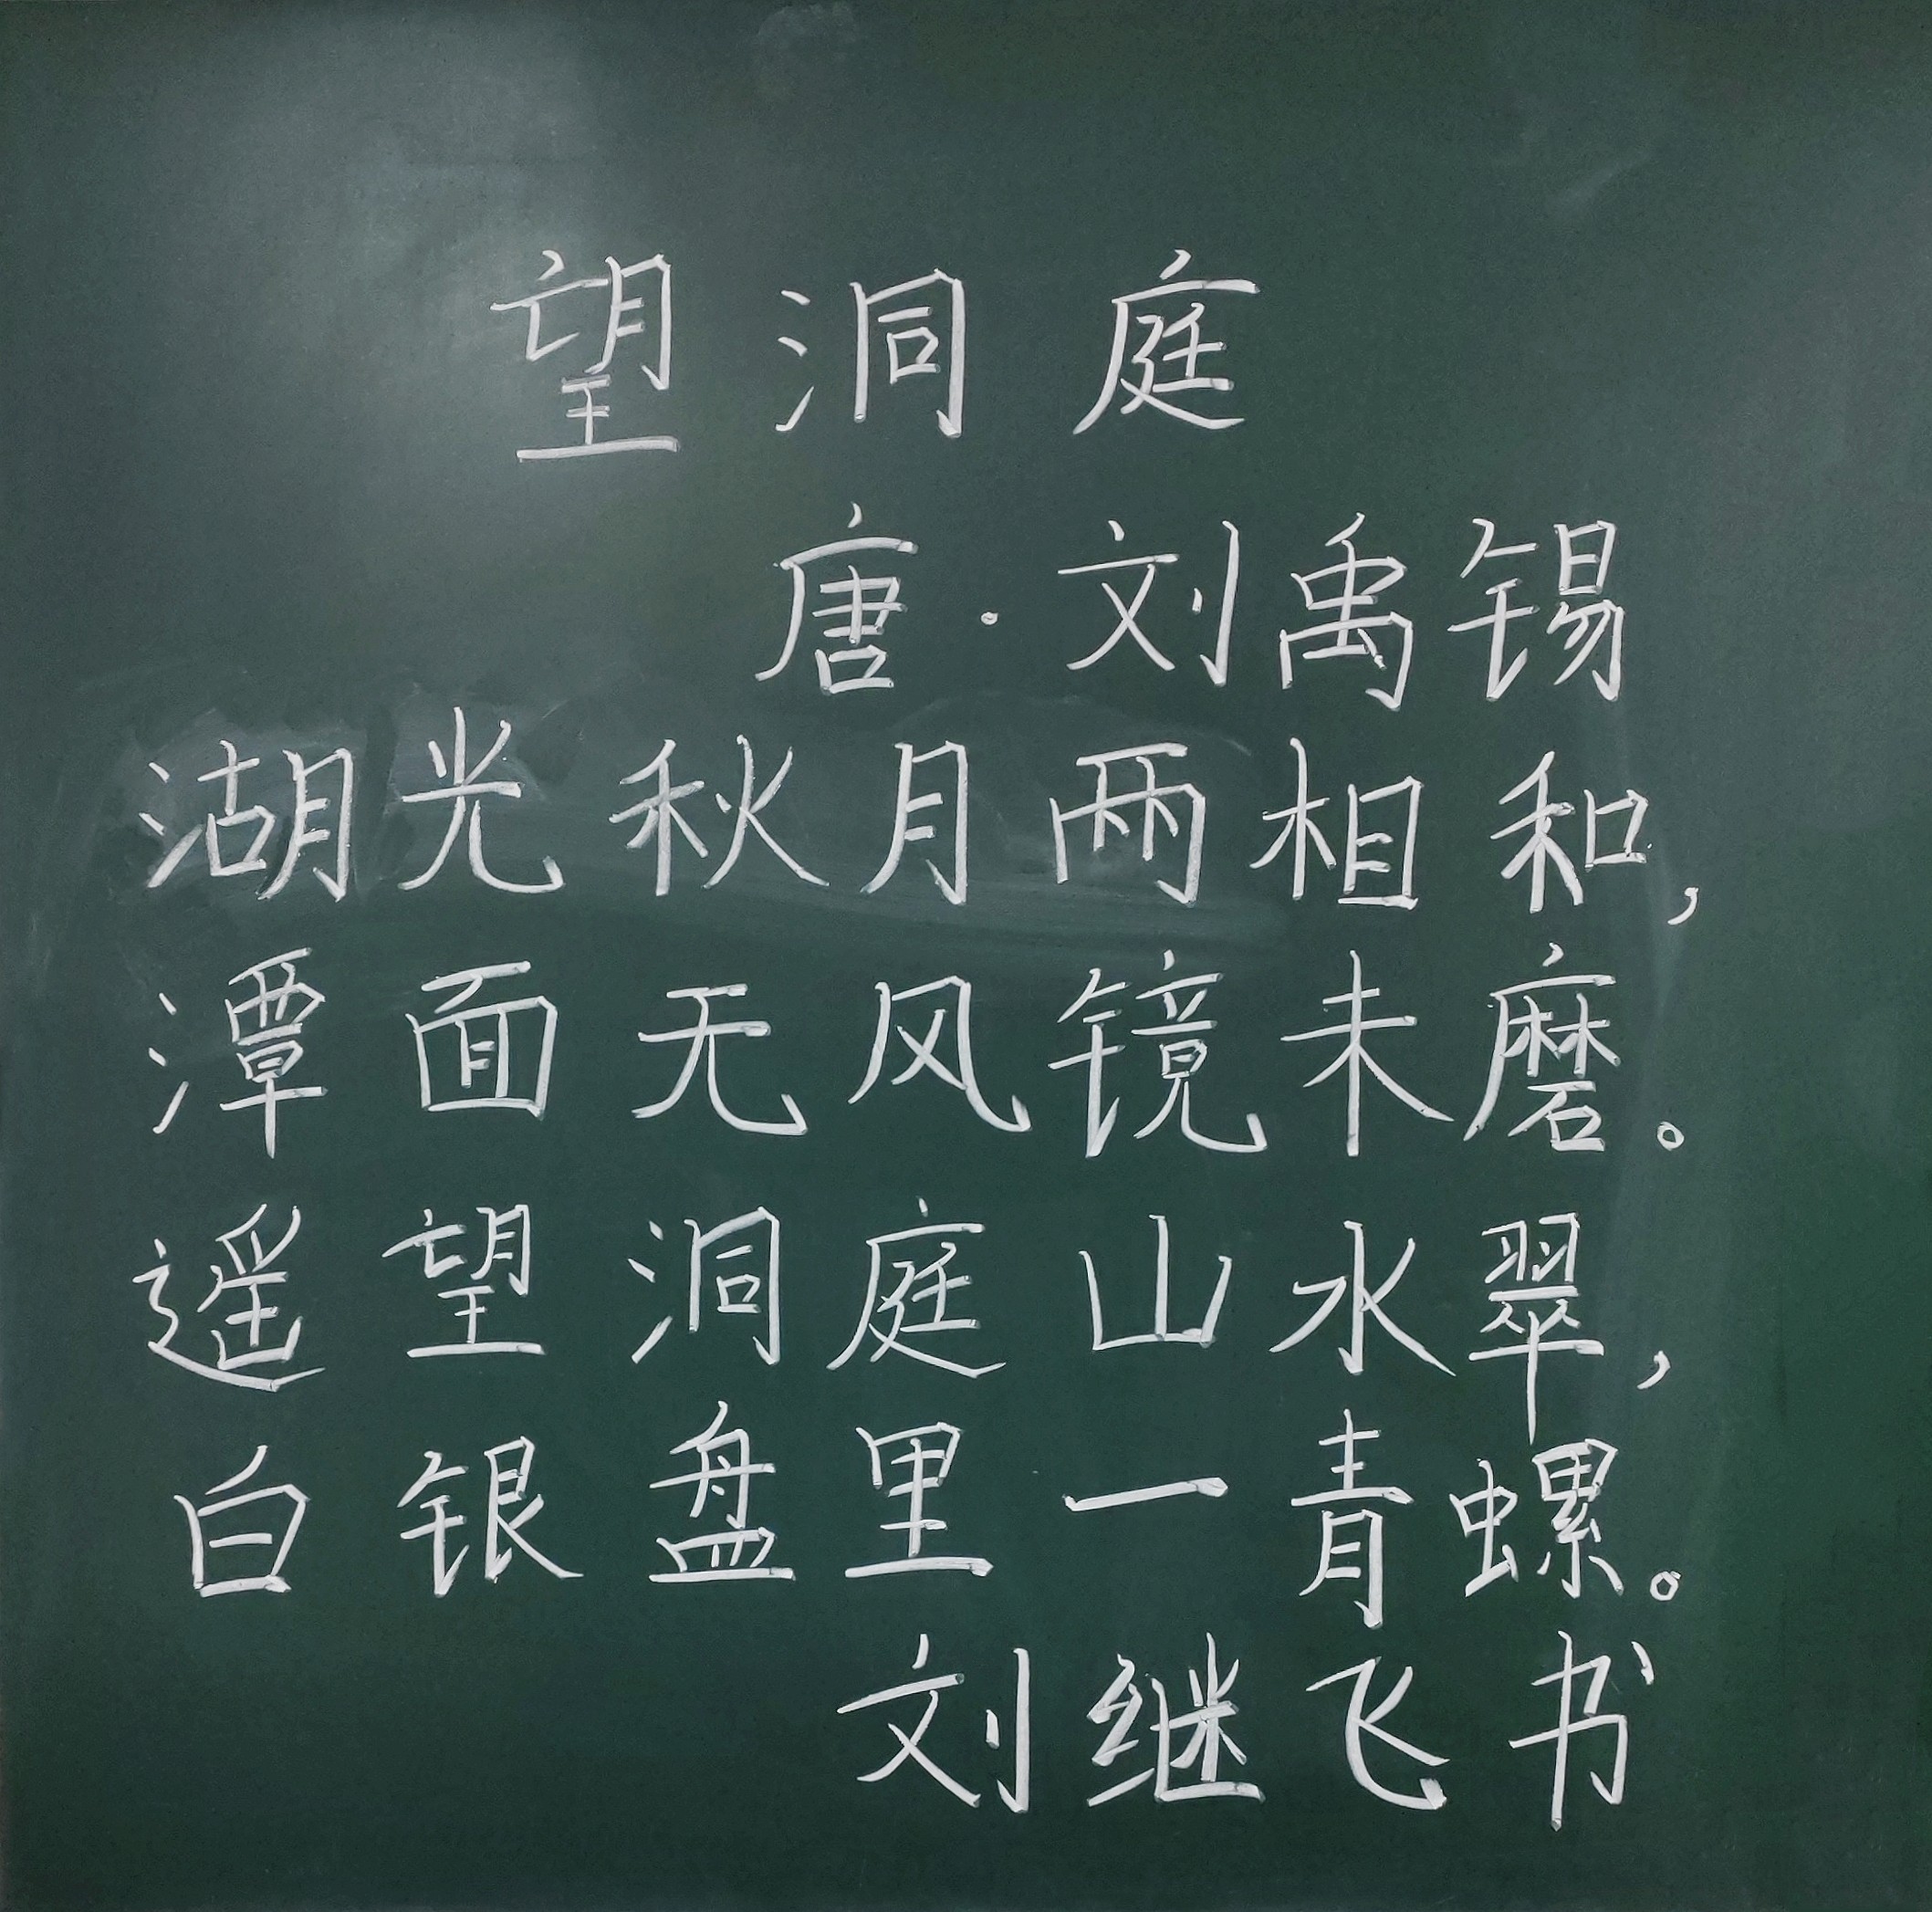 望洞庭
唐·刘禹锡
湖光秋月两相和，
潭面无风镜未磨。
遥望洞庭山水翠，
白银盘里一青螺。
刘继飞书